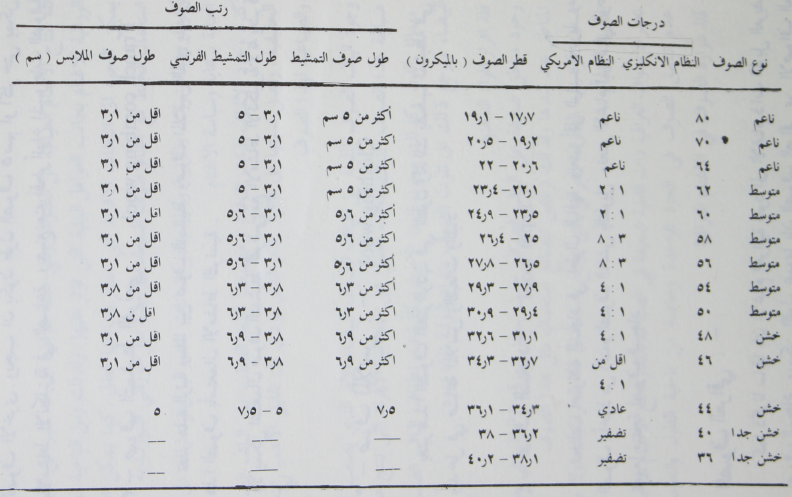 رتب الصوف
درجات الصوف
نوع الصوف النظام الانكليزي النظام الامريكي قطر الصوف ( بالميكرون ) طول صوف التمشيط طول التمشيط الفرنسي طول صوف الملابس ( سم )
ناعم ٨٠ ناعم ١٧٫٧ – ١٩٫١ أكثر من ٥ سم ٣٫١ – ٥ اقل من ٣٫١
ناعم ٧٠ ناعم ١٩٫٢ – ٢٠٫٥ اكثر من ٥ سم ٣٫١ – ٥ اقل من ٣٫١
ناعم ٦٤ ناعم ٢٠٫٦ – ٢٢ اكثر من ٥ سم ٣٫١ – ٥ اقل من ٣٫١
متوسط ٦٢ ١ : ٢ ٢٢٫١ – ٢٣٫٤ اكثر من ٥ سم ٣٫١ – ٥ اقل من ٣٫١
متوسط ٦٠ ١ : ٢ ٢٣٫٥ – ٢٤٫٩ أكثر من ٥٫٦ ٣٫١ – ٥٫٦ اقل من ٣٫١
متوسط ٥٨ ٣ : ٨ ٢٥ – ٢٦٫٤ اكثر من ٥٫٦ ٣٫١ – ٥٫٦ اقل من ٣٫١
متوسط ٥٦ ٣ : ٨ ٢٦٫٥ – ٢٧٫٨ أكثر من ٥٫٦ ٣٫١ – ٥٫٦ اقل من ٣٫١
متوسط ٥٤ ١ : ٤ ٢٧٫٩ – ٢٩٫٣ أكثر من ٦٫٣ ٣٫٨ – ٦٫٣ اقل من ٣٫٨
متوسط ٥٠ ١ : ٤ ٢٩٫٤ – ٣٠٫٩ اكثر من ٦٫٣ ٣٫٨ – ٦٫٣ اقل ن ٣٫٨
خشن ٤٨ ١ : ٤ ٣١٫١ – ٣٢٫٦ اكثر من ٦٫٩ ٣٫٨ – ٦٫٩ اقل من ٣٫١
خشن ٤٦ اقل من ٣٢٫٧ – ٣٤٫٣ اكثر من ٦٫٩ ٣٫٨ – ٦٫٩ اقل من ٣٫١
١ : ٤
خشن ٤٤ عادي ٣٤٫٣ – ٣٦٫١ ٧٫٥ ٥ – ٧٫٥ ٥
خشن جدا ٤٠ تضفير ٣٦٫٢ – ٣٨ — — —
خشن جدا ٣٦ تضفير ٣٨٫١ – ٤٠٫٢ — — —